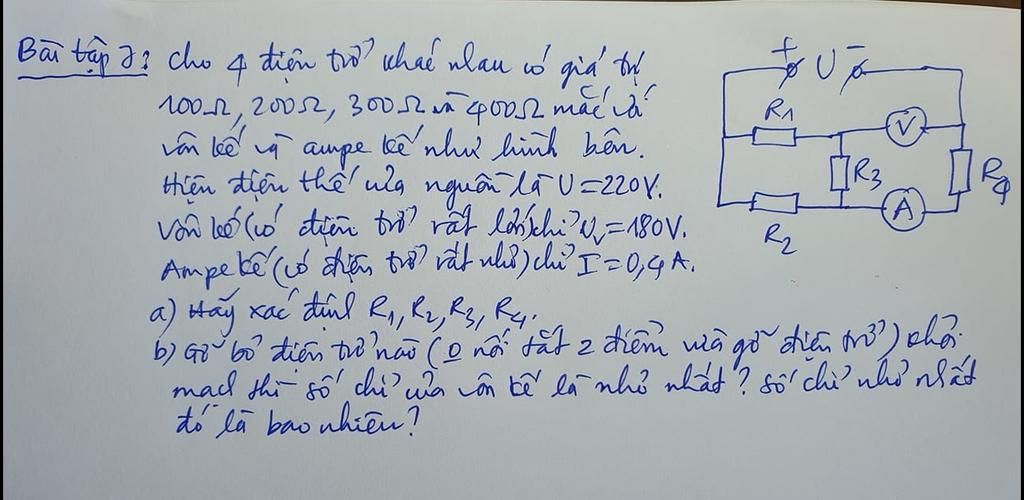 Bài tập 2: Cho 4 điện trở khác nhau có giá trị
100Ω, 200Ω, 300Ω và 400Ω mắc với
vôn kế và ampe kế như hình bên.
Hiệu điện thế của nguồn là U=220V.
Vôn kế (có điện trở rất lớn) chỉ Uv=180V.
Ampe kế (có điện trở rất nhỏ) chỉ I=0,4A.
a) Hãy xác định R1, R2, R3, R4.
b) Gỡ bỏ điện trở nào (0 nối tắt 2 điểm vừa gỡ điện trở) khỏi
mạch thì số chỉ của vôn kế là nhỏ nhất? Số chỉ nhỏ nhất
đó là bao nhiêu?
+ U -
R1
V
R3
R4
A
R2